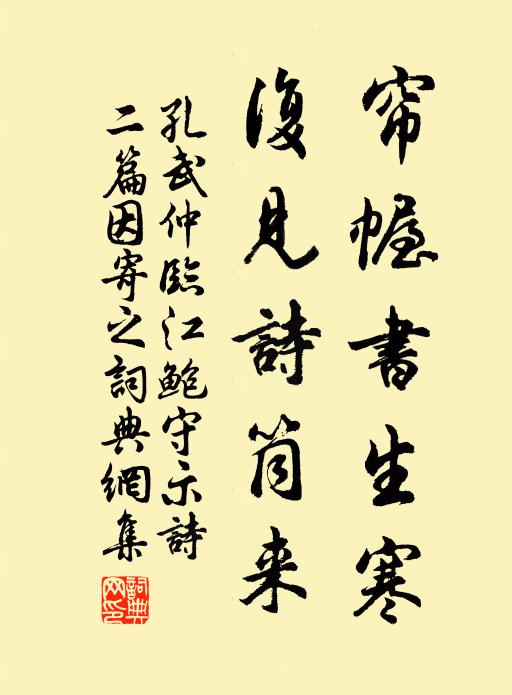 帘幄書生寒
復見詩筒来
孔武仲臨江鲍守示詩
二篇因寄之詞典網集
詞典網印